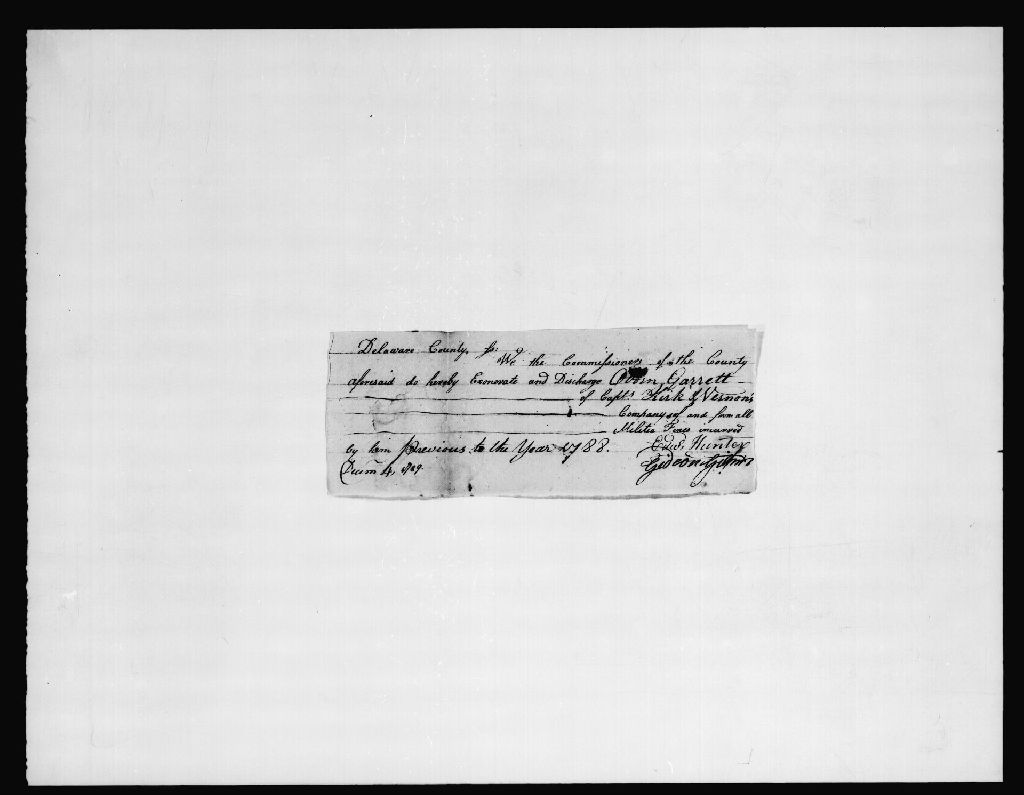 Delaware County, ss.
We the Commissioners of the County
aforesaid do hereby Exonorate and Discharge Garrett
of Capts. Kirk & Vernons
Company of and from all
Militia Fines incurred
by him previous to the Year 1788.
Edwd. Hunter
Decem 4, 1789.
Gideon